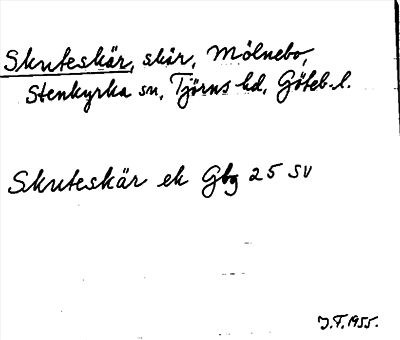 Skuteskär, skär, Mölnebo,
Stenkyrka sn, Tjörns hd, Göteb. l.
Skuteskär ek Gbg 25 SV
J.F. 1955.